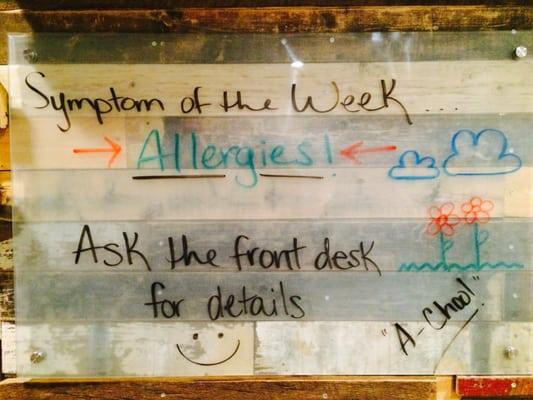 Symptom of the Week ....
Allergies!
Ask the front desk
for details
"A-Choo!"